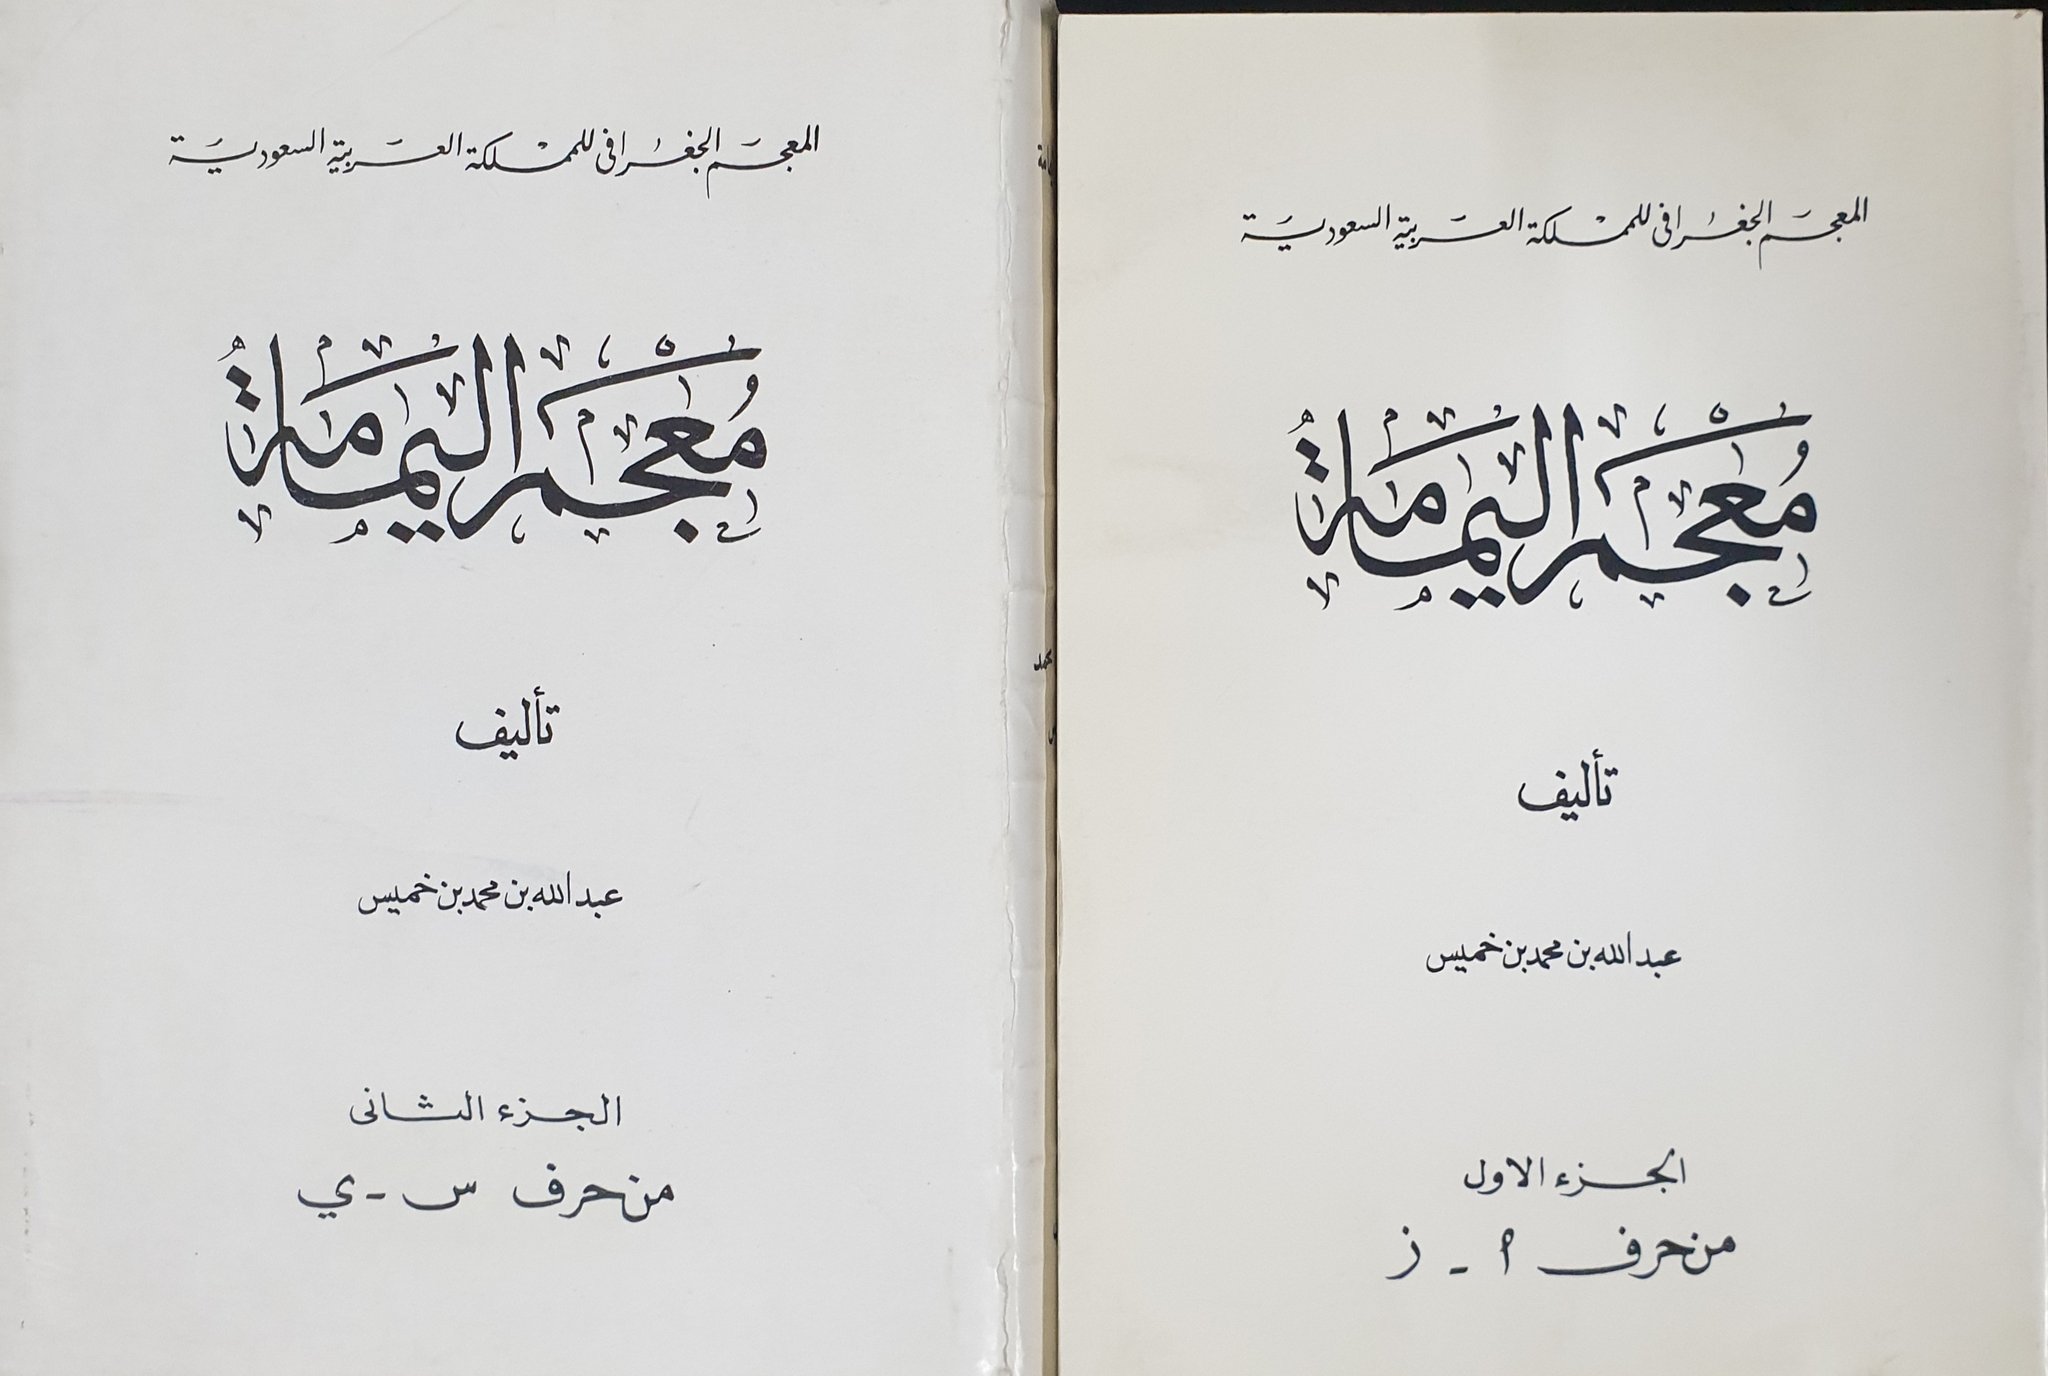 المعجم الجغرافي للمملكة العربية السعودية
مُعْجَم اليَمَامَة
تأليف
عبد الله بن محمد بن خميس
الجزء الاول
من حرف أ - ز
المعجم الجغرافي للمملكة العربية السعودية
مُعْجَم اليَمَامَة
تأليف
عبد الله بن محمد بن خميس
الجزء الثانى
من حرف س - ي